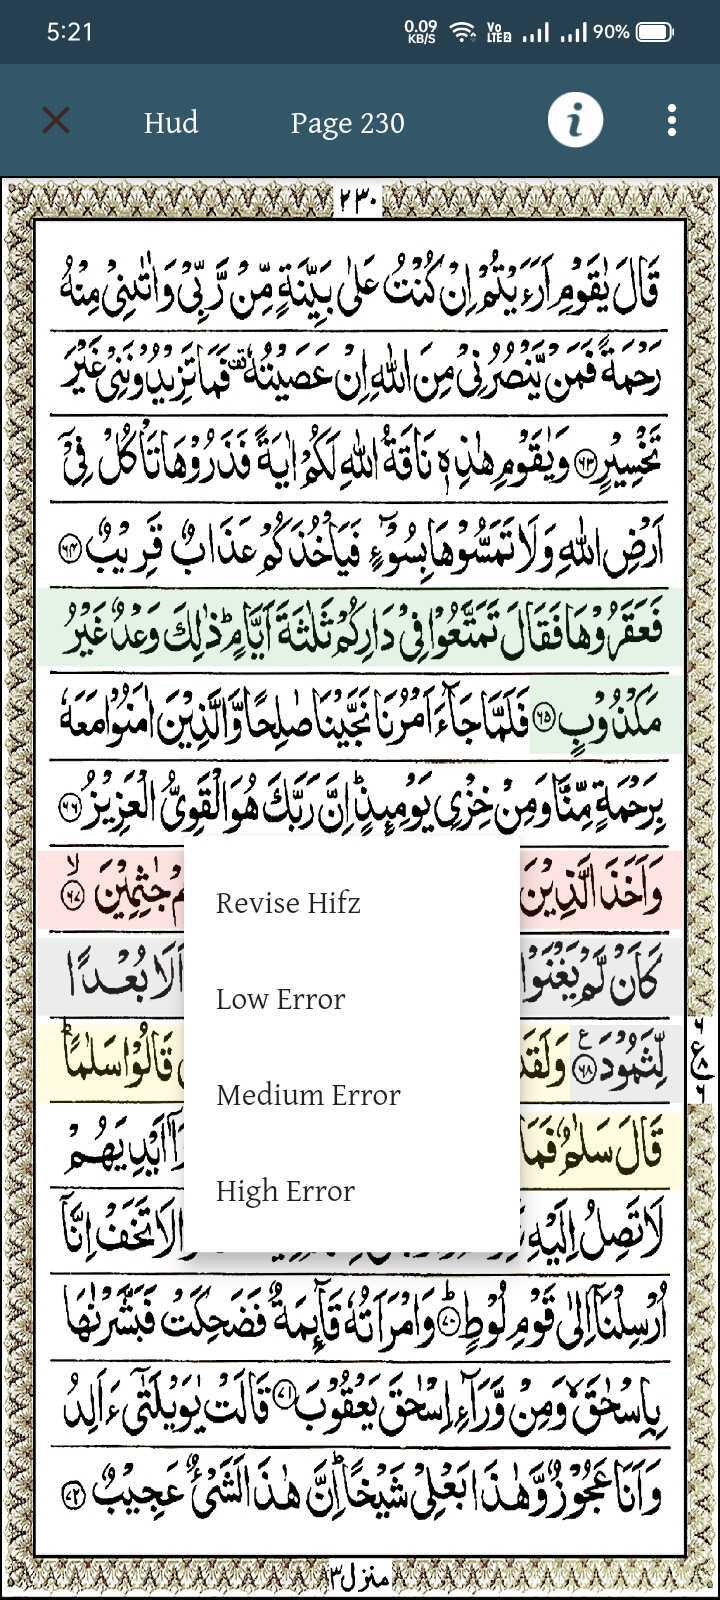 5:21 0.09 KB/S Vo LTE2 90%
Hud Page 230
٢٣٠
قَالَ يٰقَوْمِ اَرَءَيْتُمْ اِنْ كُنْتُ عَلٰى بَيِّنَةٍ مِّنْ رَّبِّىْ وَاٰتٰىنِىْ مِنْهُ
رَحْمَةً فَمَنْ يَّنْصُرُنِىْ مِنَ اللّٰهِ اِنْ عَصَيْتُهٗ قف فَمَا تَزِيْدُوْنَنِىْ غَيْرَ
تَخْسِيْرٍ ﴿٦٣﴾ وَيٰقَوْمِ هٰذِهٖ نَاقَةُ اللّٰهِ لَكُمْ اٰيَةً فَذَرُوْهَا تَاْكُلْ فِىْۤ
اَرْضِ اللّٰهِ وَلَا تَمَسُّوْهَا بِسُوْٓءٍ فَيَاْخُذَكُمْ عَذَابٌ قَرِيْبٌ ﴿٦٤﴾
فَعَقَرُوْهَا فَقَالَ تَمَتَّعُوْا فِىْ دَارِكُمْ ثَلٰثَةَ اَيَّامٍ ؕ ذٰلِكَ وَعْدٌ غَيْرُ
مَكْذُوْبٍ ﴿٦٥﴾ فَلَمَّا جَآءَ اَمْرُنَا نَجَّيْنَا صٰلِحًا وَّالَّذِيْنَ اٰمَنُوْا مَعَهٗ
بِرَحْمَةٍ مِّنَّا وَمِنْ خِزْىِ يَوْمِئِذٍ ؕ اِنَّ رَبَّكَ هُوَ الْقَوِىُّ الْعَزِيْزُ ﴿٦٦﴾
وَاَخَذَ الَّذِيْنَ جٰثِمِيْنَ ۙ ﴿٦٧﴾
كَاَنْ لَّمْ يَغْنَوْا اَلَا بُعْدًا
لِّثَمُوْدَ ﴿٦٨﴾ ع وَلَقَدْ قَالُوْا سَلٰمًا ؕ
قَالَ سَلٰمٌ فَمَا اَيْدِيَهُمْ
لَا تَصِلُ اِلَيْهِ لَا تَخَفْ اِنَّاۤ
اُرْسِلْنَاۤ اِلٰى قَوْمِ لُوْطٍ ؕ ﴿٧٠﴾ وَامْرَاَتُهٗ قَآئِمَةٌ فَضَحِكَتْ فَبَشَّرْنٰهَا
بِاِسْحٰقَ ۙ وَمِنْ وَّرَآءِ اِسْحٰقَ يَعْقُوْبَ ﴿٧١﴾ قَالَتْ يٰوَيْلَتٰٓى ءَاَلِدُ
وَاَنَا عَجُوْزٌ وَّهٰذَا بَعْلِىْ شَيْخًا ؕ اِنَّ هٰذَا لَشَىْءٌ عَجِيْبٌ ﴿٧٢﴾
Revise Hifz
Low Error
Medium Error
High Error
٦ ع ٨ ٦
منزل ٣